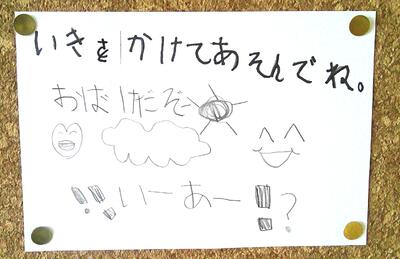 いきをかけてあそんでね。
おばけだぞー
!!いーあー!!?